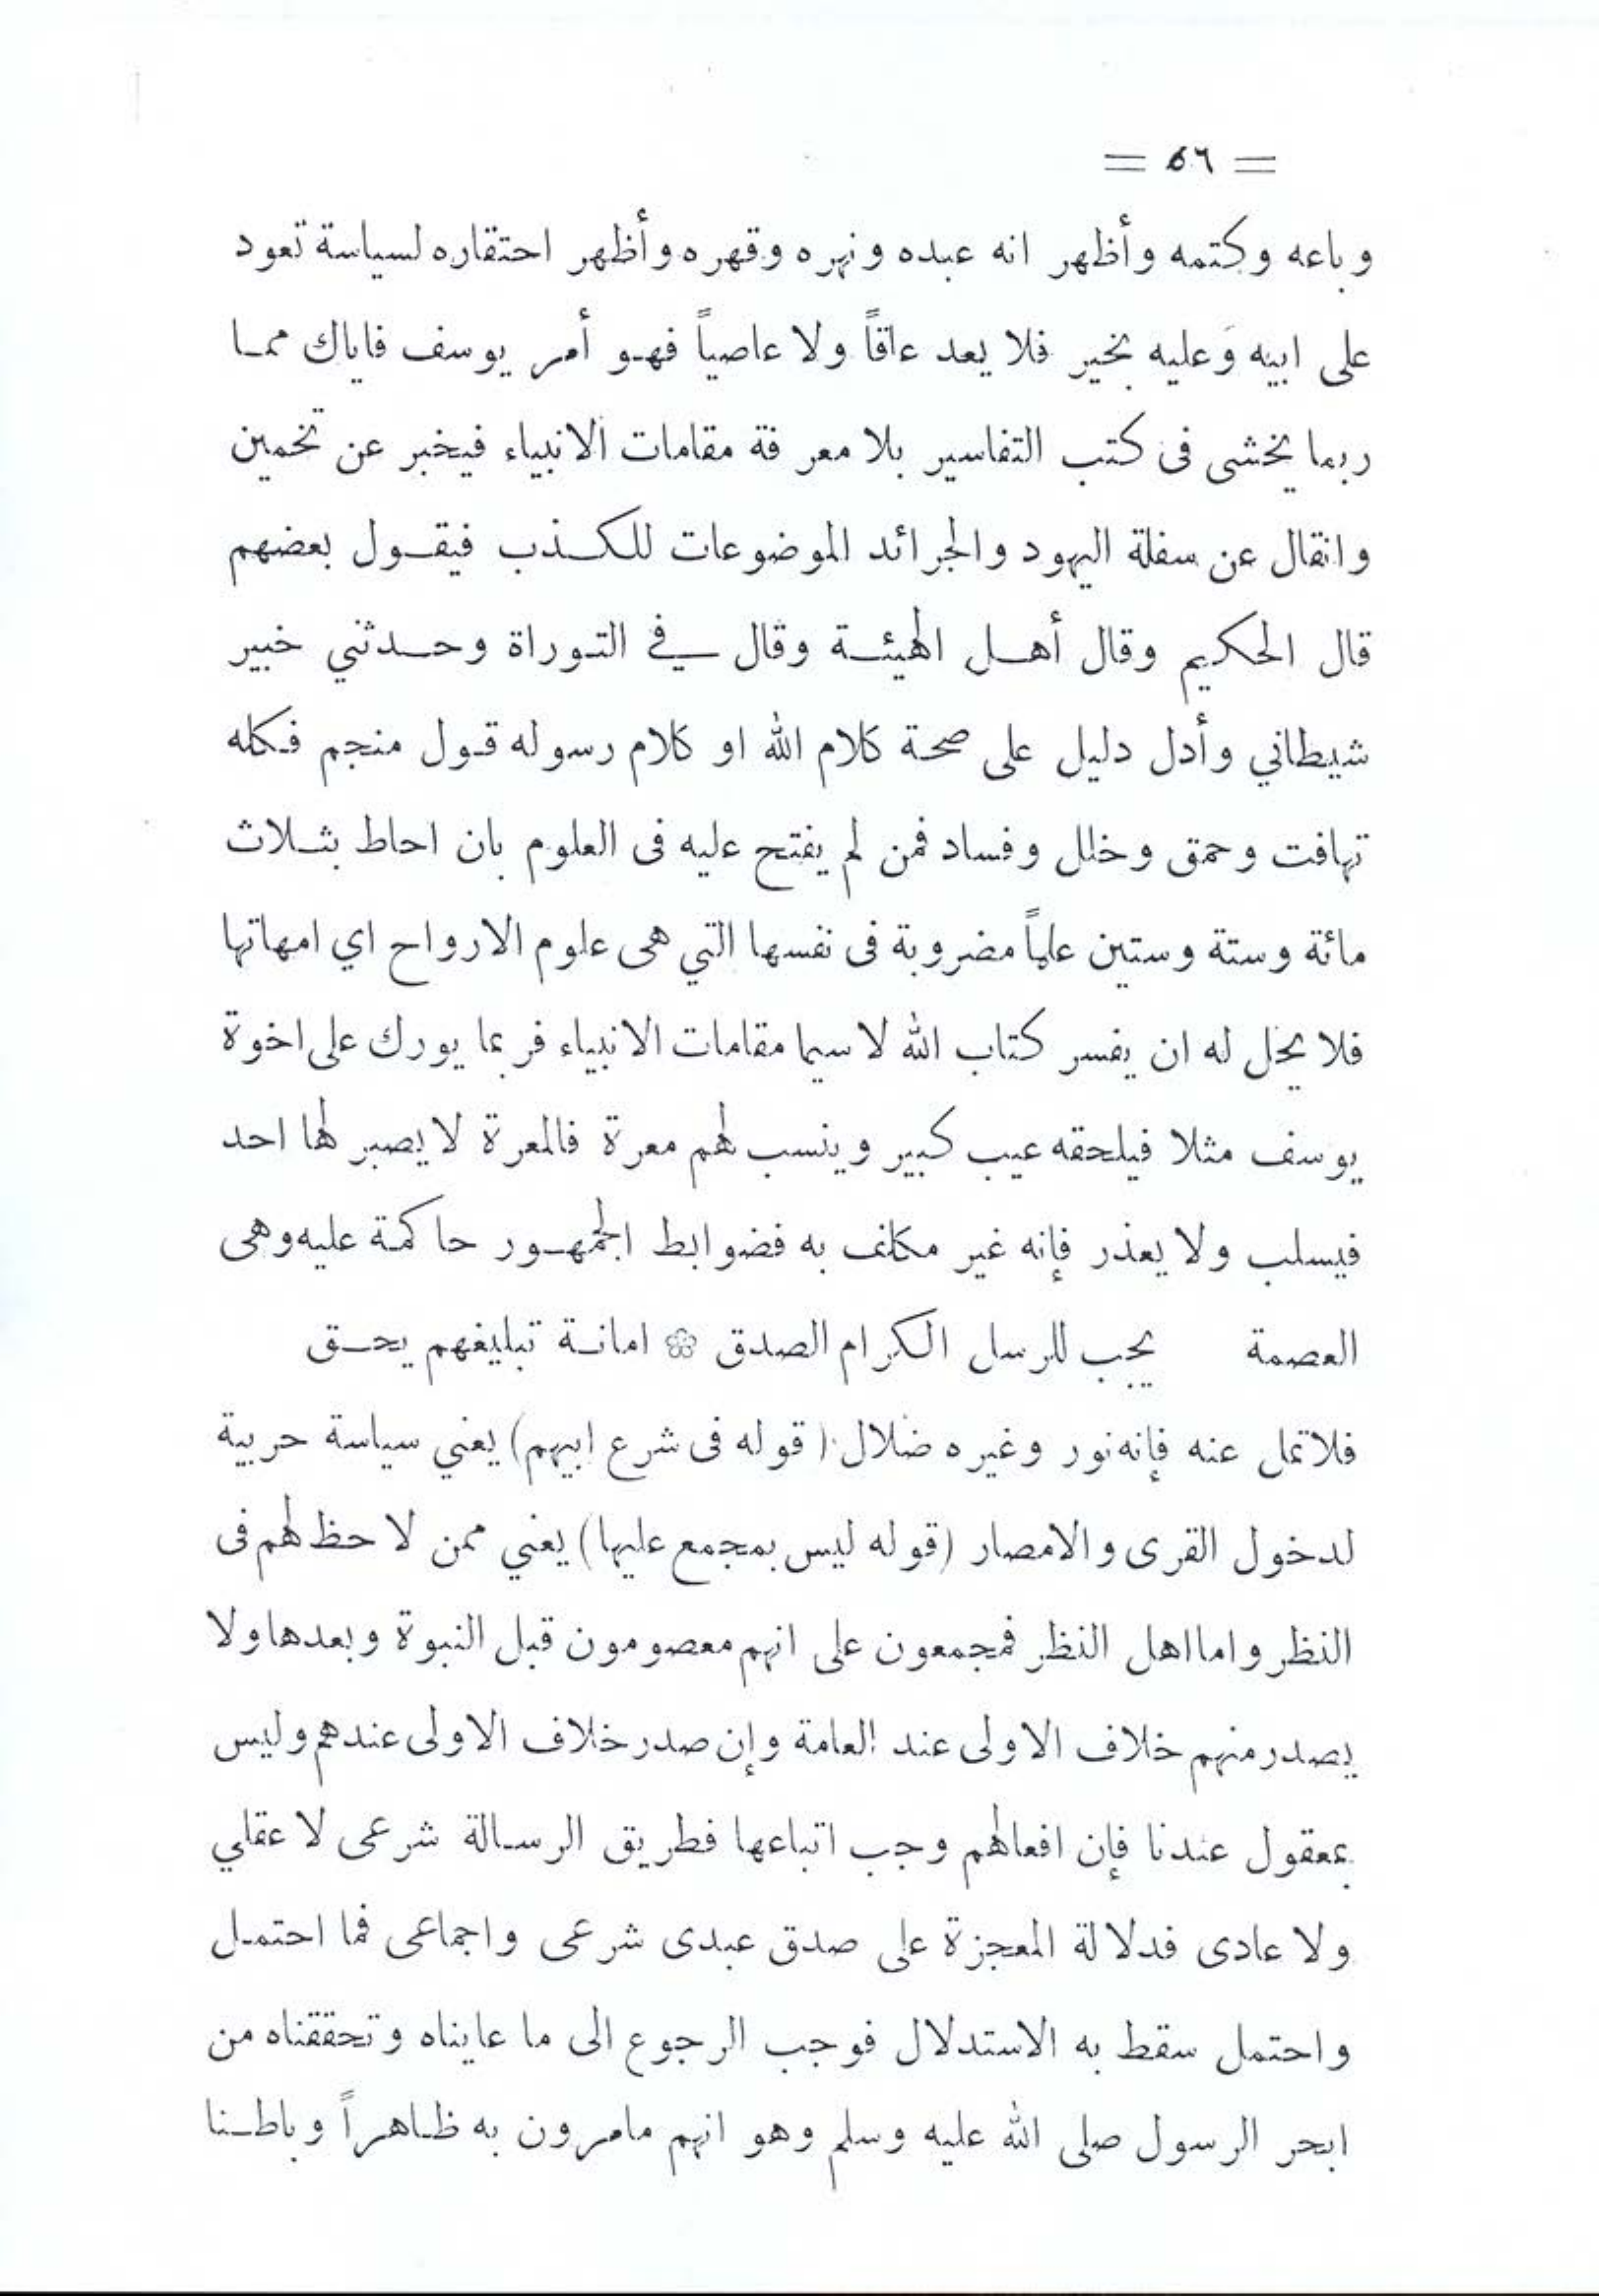 = ٥٦ =
وباعه وكتمه وأظهر انه عبده ونهره وقهره وأظهر احتقاره لسياسة تعود
على ابيه وعليه بخير فلا يعد عاقاً ولا عاصياً فهو أمر يوسف فاياك مما
ربما يخشى فى كتب التفاسير بلا معرفة مقامات الانبياء فيخبر عن تخمين
وانقال عن سفلة اليهود والجرائد الموضوعات للكذب فيقول بعضهم
قال الحكيم وقال أهل الهيئة وقال في التوراة وحدثني خبير
شيطاني وأدل دليل على صحة كلام الله او كلام رسوله قول منجم فكله
تهافت وحمق وخلل وفساد فمن لم يفتح عليه فى العلوم بان احاط بثلاث
مائة وستة وستين علماً مضروبة فى نفسها التي هى علوم الارواح اي امهاتها
فلا يحل له ان يفسر كتاب الله لا سيما مقامات الانبياء فربما يورك على اخوة
يوسف مثلا فيلحقه عيب كبير وينسب لهم معرة فالمعرة لا يصبر لها احد
فيسلب ولا يعذر فإنه غير مكلف به فضوابط الجمهور حاكمة عليه وهى
العصمة يجب للرسل الكرام الصدق ❀ امانة تبليغهم يحق
فلا تمل عنه فإنه نور وغيره ضلال (قوله فى شرع ابيهم) يعني سياسة حربية
لدخول القرى والامصار (قوله ليس بمجمع عليها) يعني ممن لا حظ لهم فى
النظر واما اهل النظر فمجمعون على انهم معصومون قبل النبوة وبعدها ولا
يصدر منهم خلاف الاولى عند العامة وإن صدر خلاف الاولى عندهم وليس
بمعقول عندنا فإن افعالهم وجب اتباعها فطريق الرسالة شرعى لا عقلي
ولا عادى فدلالة المعجزة على صدق عبدى شرعى واجماعى فما احتمل
واحتمل سقط به الاستدلال فوجب الرجوع الى ما عايناه وتحققناه من
ابحر الرسول صلى الله عليه وسلم وهو انهم مامرون به ظاهراً وباطنا